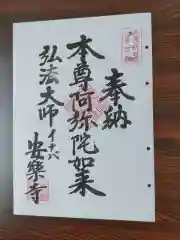 奉納
本尊阿弥陀如来
弘法大師
安楽寺